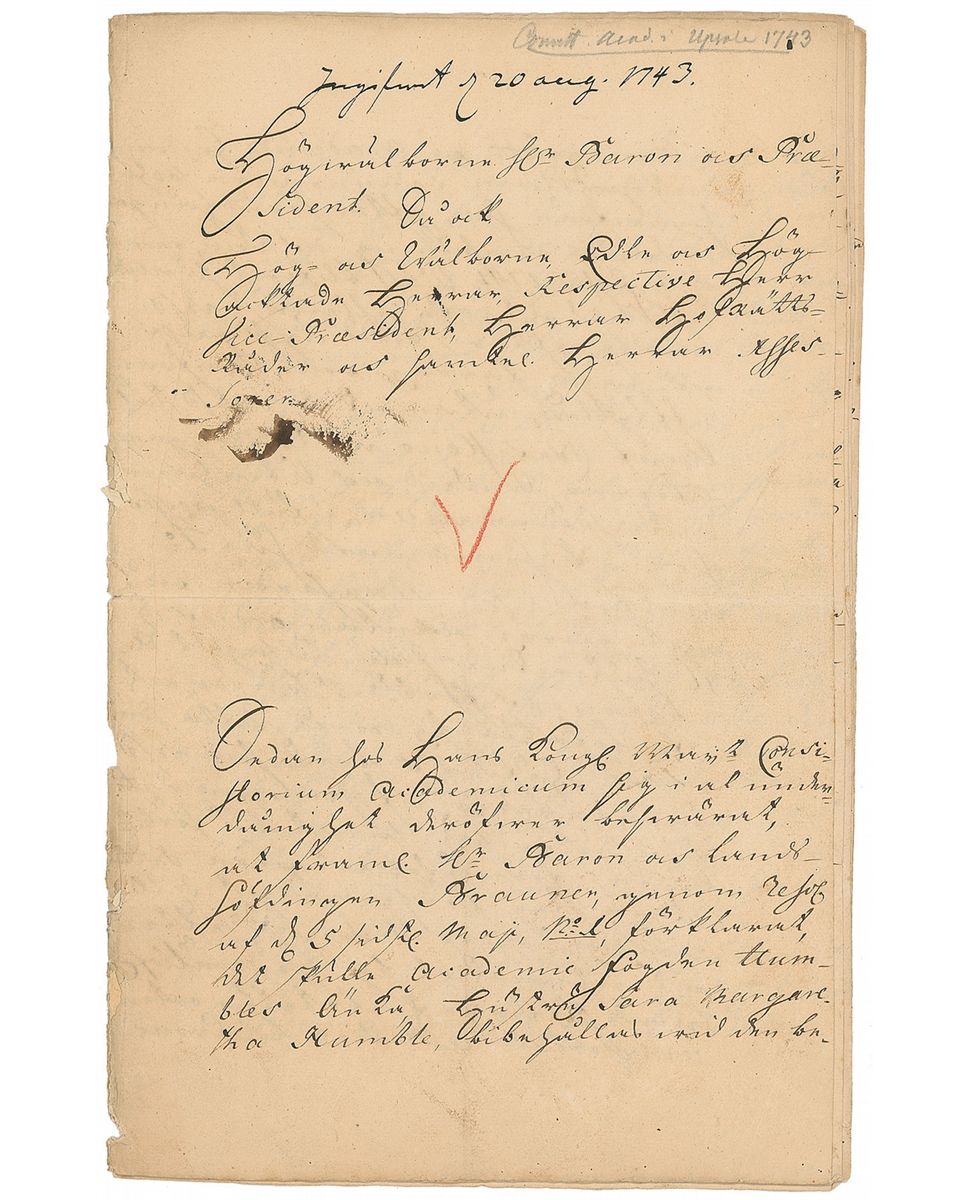 Acad. i Upsala 1743
Ingifwit d 20 aug. 1743.
Högwälborne Hr Baron och Præ-
sident. Så ock
Hög- och Wälborne, Edle och Hög-
acktade Herrar, Respective Herr
Vice-Præsident, Herrar HofRätts-
Råder och samtel. Herrar Asses-
sorer.
Sedan hos Hans Kongl. Mayt Consi-
storium Academicum sig i al under-
dånighet deröfwer beswärat,
at framl. Hr Baron och Lands-
höfdingen Brauner, genom Resol.
af d 5 sidstl. Maji, No 1, förklarat,
det skulle Academie fogden Hum-
bles Änka, Hustru Sara Margare-
tha Humble, bibehållas wid den be-